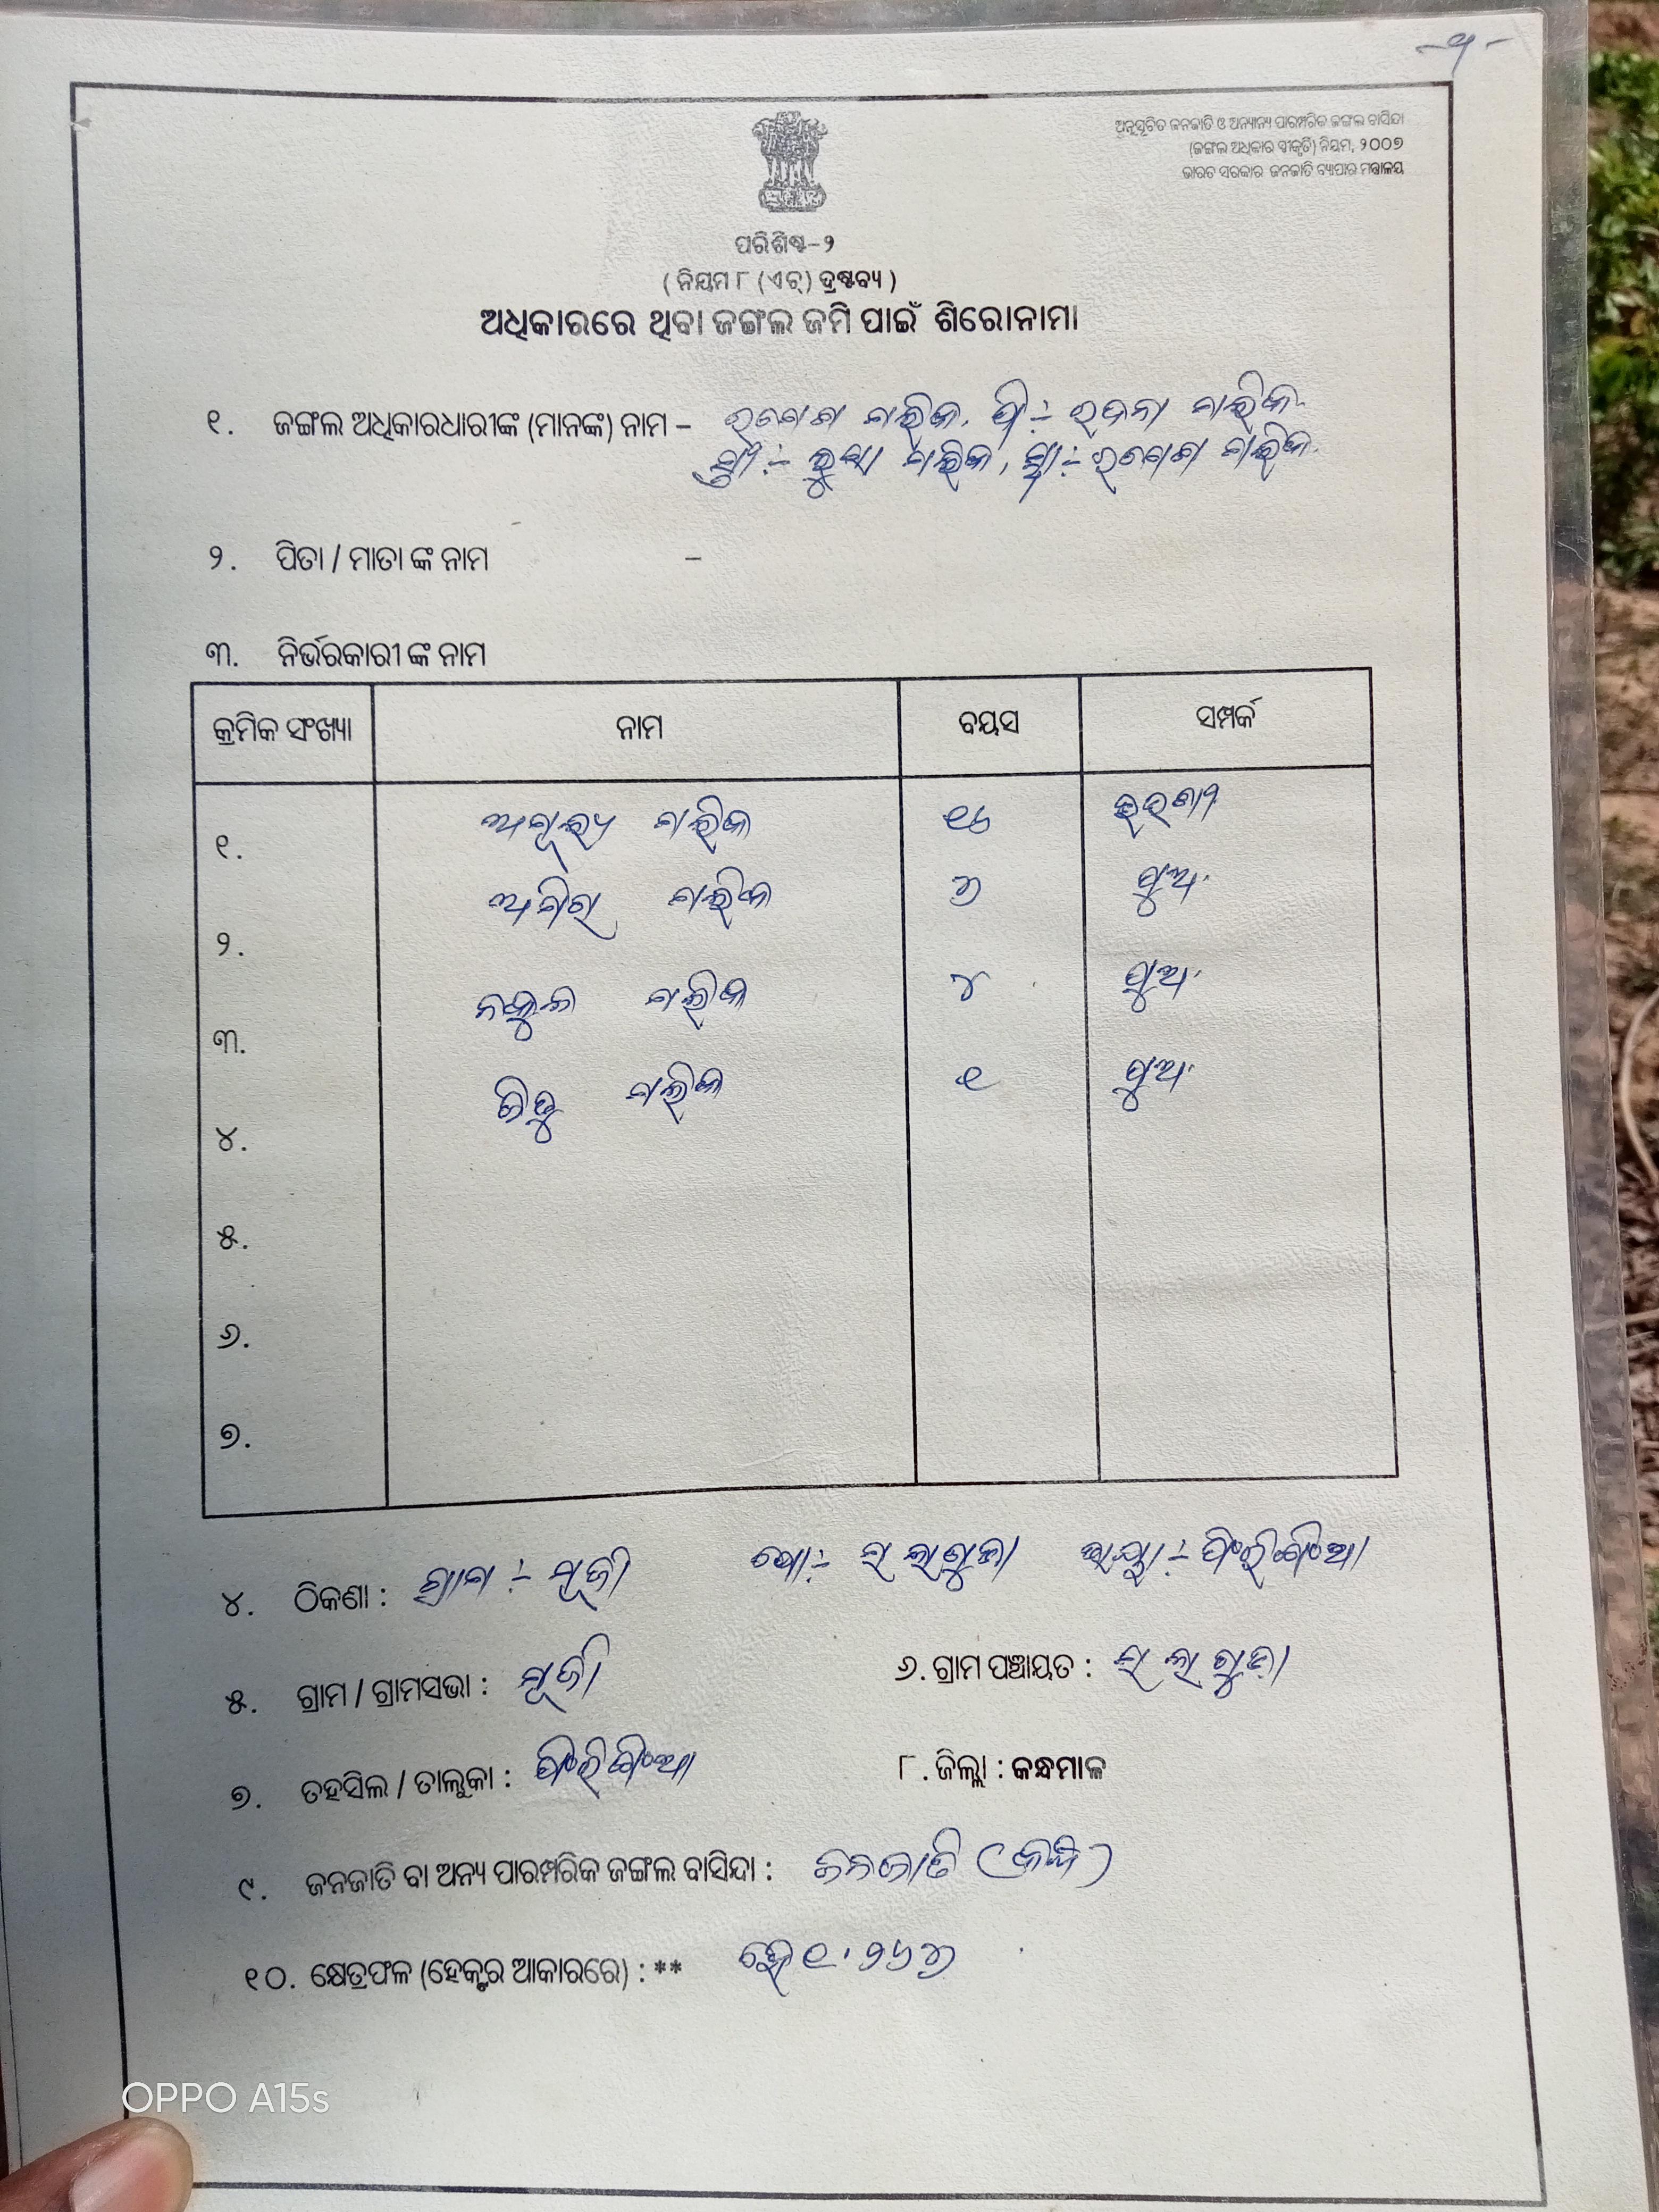 ଅନୁସୂଚିତ ଜନଜାତି ଓ ଅନ୍ୟାନ୍ୟ ପାରମ୍ପରିକ ଜଙ୍ଗଲ ବାସିନ୍ଦା
(ଜଙ୍ଗଲ ଅଧିକାର ସ୍ୱୀକୃତି) ନିୟମ, ୨୦୦୭
ଭାରତ ସରକାର ଜନଜାତି ବ୍ୟାପାର ମନ୍ତ୍ରାଳୟ
ପରିଶିଷ୍ଟ-୨
( ନିୟମ ୮ (ଏଚ୍) ଦ୍ରଷ୍ଟବ୍ୟ )
ଅଧିକାରରେ ଥିବା ଜଙ୍ଗଲ ଜମି ପାଇଁ ଶିରୋନାମା
୧. ଜଙ୍ଗଲ ଅଧିକାରଧାରୀଙ୍କ (ମାନଙ୍କ) ନାମ – ମଲିକ, ପି:- ମଲିକ
ସ୍ତ୍ରୀ:- ମଲିକ, ସ୍ୱା:- ମଲିକ
୨. ପିତା / ମାତା ଙ୍କ ନାମ –
୩. ନିର୍ଭରକାରୀ ଙ୍କ ନାମ
କ୍ରମିକ ସଂଖ୍ୟା ନାମ ବୟସ ସମ୍ପର୍କ
୧. ଅମୂଲ୍ୟ ମଲିକ ୧୬
୨. ମଲିକ ୬ ପୁଅ
୩. ନକୁଳ ମଲିକ ୪ ପୁଅ
୪. ମଲିକ ୧ ପୁଅ
୫.
୬.
୭.
୪. ଠିକଣା : ଗ୍ରାମ:- ପୋ:- ଥାନା:- ଫିରିଙ୍ଗିଆ
୫. ଗ୍ରାମ / ଗ୍ରାମସଭା : ୬. ଗ୍ରାମ ପଞ୍ଚାୟତ :
୭. ତହସିଲ / ତାଲୁକା : ଫିରିଙ୍ଗିଆ ୮. ଜିଲ୍ଲା : କନ୍ଧମାଳ
୯. ଜନଜାତି ବା ଅନ୍ୟ ପାରମ୍ପରିକ ଜଙ୍ଗଲ ବାସିନ୍ଦା : ଜନଜାତି (କନ୍ଧ)
୧୦. କ୍ଷେତ୍ରଫଳ (ହେକ୍ଟର ଆକାରରେ) : ** ହେ
OPPO A15s